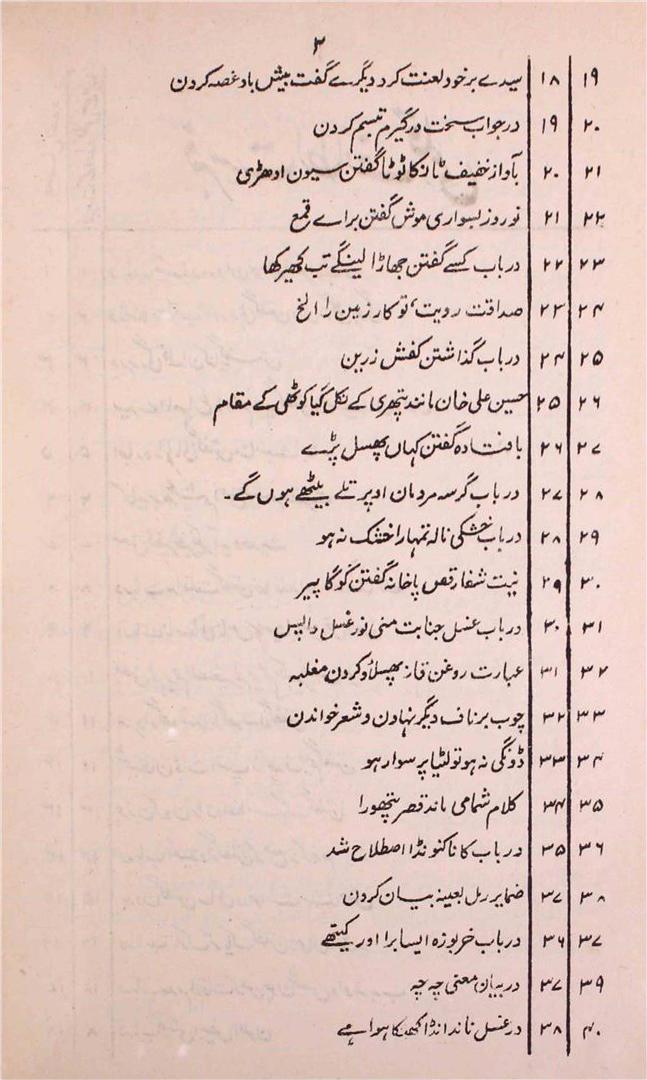 ۲
۱۹ ۱۸ سیدے برخود لعنت کرد دیگرے گفت بیش باد غصہ کردن
۲۰ ۱۹ در جواب سخت در گیرم تبسم کردن
۲۱ ۲۰ بآواز خفیف ٹانکا ٹوٹا گفتن سیون ادھڑی
۲۲ ۲۱ نوروز بسواری موش گفتن براے قمع
۲۳ ۲۲ درباب کسے گفتن جھاڑا لینگے تب کھیر کھا
۲۴ ۲۳ صداقت رویت، تو کار زمین را الخ
۲۵ ۲۴ درباب گذاشتن کفش زرین
۲۶ ۲۵ حسین علی خان مانند پتھری کے نکل گیا کوٹھی کے مقام
۲۷ ۲۶ بافتادہ گفتن کہاں پھسل پڑے
۲۸ ۲۷ درباب گرسہ مردمان اوپر تلے بیٹھے ہوں گے۔
۲۹ ۲۸ درباب خشکی نالہ تمہارا خشک نہ ہو
۳۰ ۲۹ نیت شفا رقص پاخانہ گفتن گوگا پیر
۳۱ ۳۰ درباب غسل جنابت منی نور غسل واپس
۳۲ ۳۱ عبارت روغن قاز پھسلاؤ کردن مغلبہ
۳۳ ۳۲ چوب برناف دیگر نہادن و شعر خواندن
۳۴ ۳۳ ڈونگی نہ ہو تو لٹیا پر سوار ہو
۳۵ ۳۴ کلام شمامی ماند قصر پتھورا
۳۶ ۳۵ درباب کاناکنونڈا اصطلاح شد
۳۸ ۳۷ ضمایر رمل بعینہ بیان کردن
۳۷ ۳۶ درباب خربوزہ ایسا برا اور کیتھے
۳۹ ۳۷ دربیان معنی چہ چہ
۴۰ ۳۸ در غسل ناند انڈا کھٹکا ہوا ہے